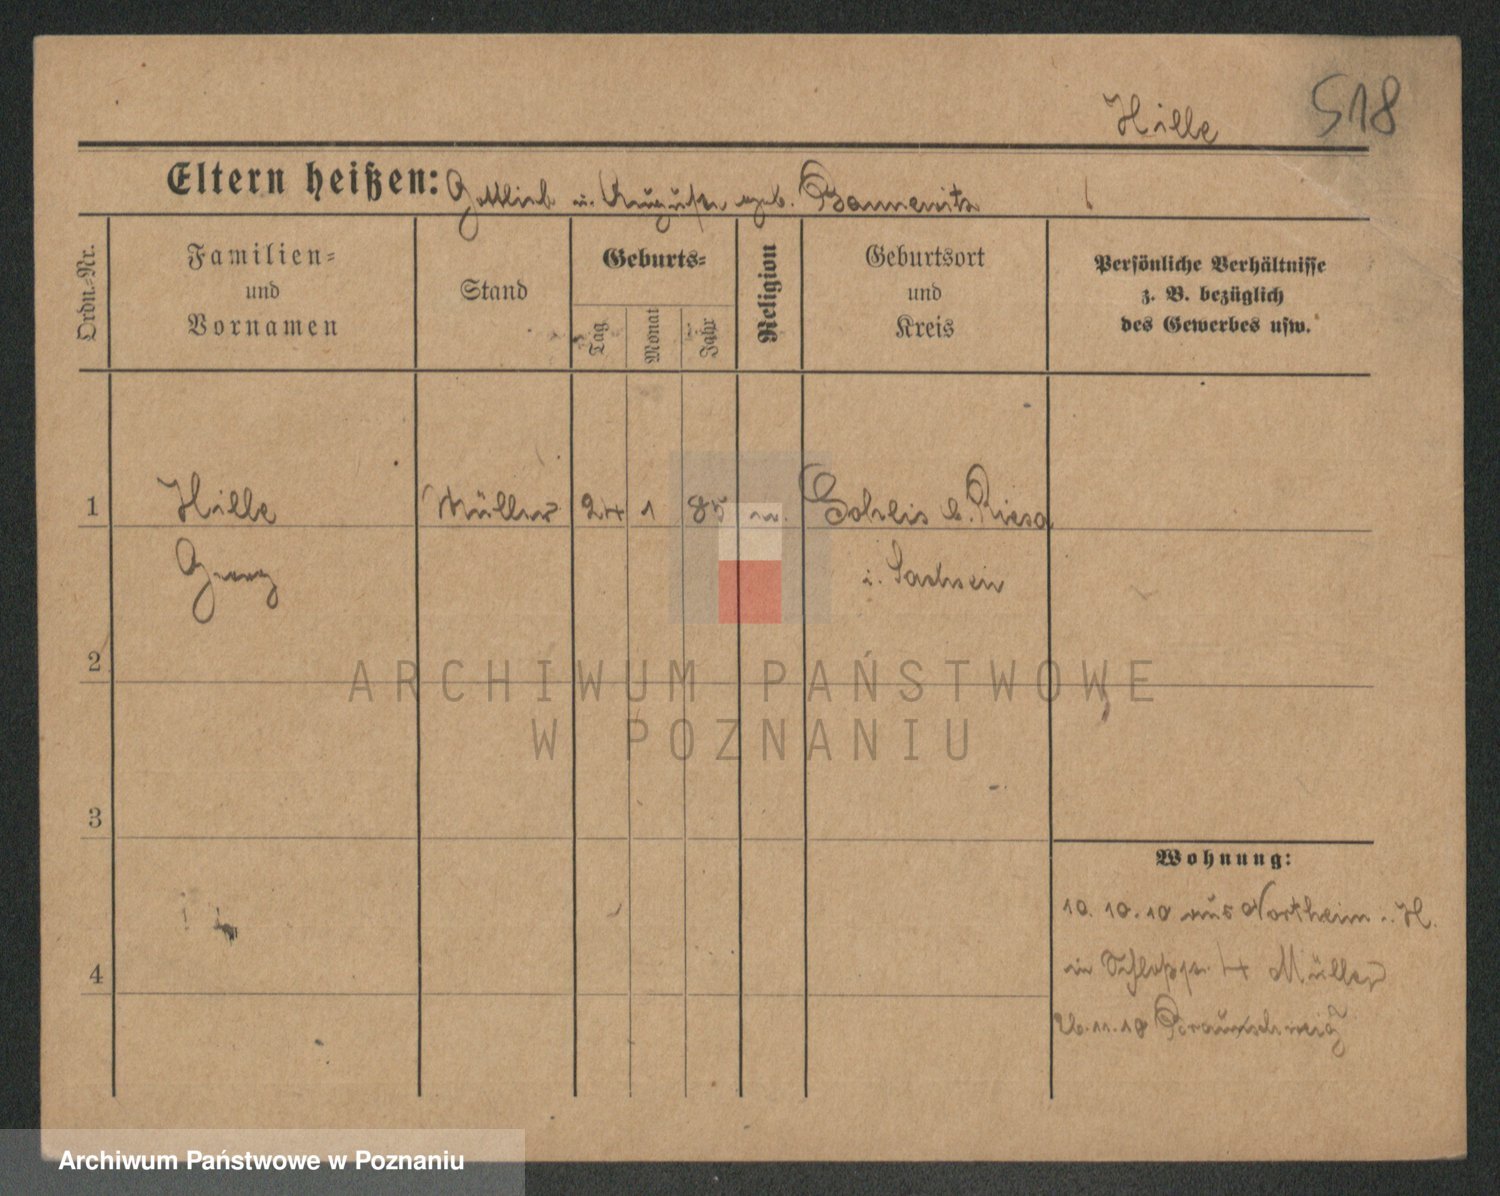 Hille 518
Eltern heißen: Gottlieb u. Auguste geb. Bannewitz
Ordn.-Nr.
Familien-
und
Vornamen
Stand
Geburts-
Tag
Monat
Jahr
Religion
Geburtsort
und
Kreis
Persönliche Verhältnisse
z. B. bezüglich
des Gewerbes usw.
1 Hille Müller 24 1 85 Gohlis b. Riesa
Georg i. Sachsen
2
3
4
Wohnung:
10. 10. 10 aus Northeim i. H.
in 4 Müller
26. 11. 10 Braunschweig
ARCHIWUM PAŃSTWOWE
W POZNANIU
Archiwum Państwowe w Poznaniu